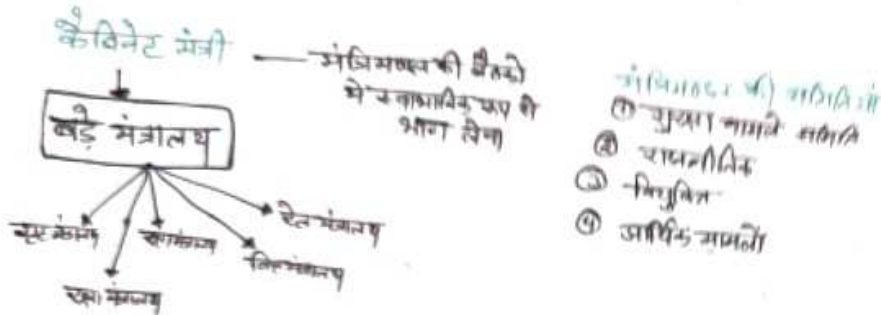 कैबिनेट मंत्री — मंत्रिमण्डल की बैठको
मे स्वाभाविक रूप से
भाग लेना
बड़े मंत्रालय
रेल मंत्रालय
गृह मंत्रालय
वित्त मंत्रालय
रक्षा मंत्रालय
मंत्रिमण्डल की समितियां
① सुरक्षा मामले समिति
② राजनीतिक
③ नियुक्ति
④ आर्थिक मामलो